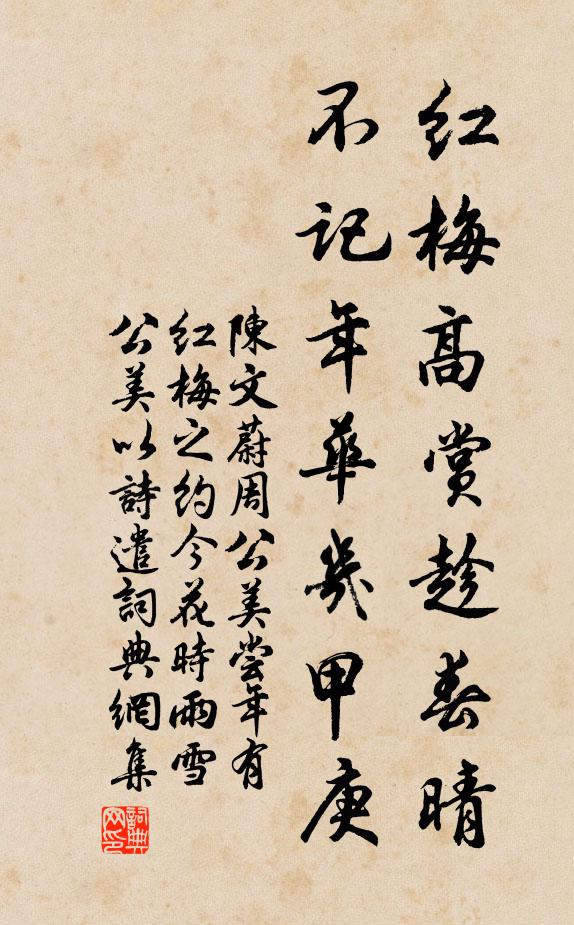 红梅高赏趁春晴
不记年华幾甲庚
陳文蔚周公美嘗年有
红梅之约今花時雨雪
公美以詩遣詞典網集
詞典网印